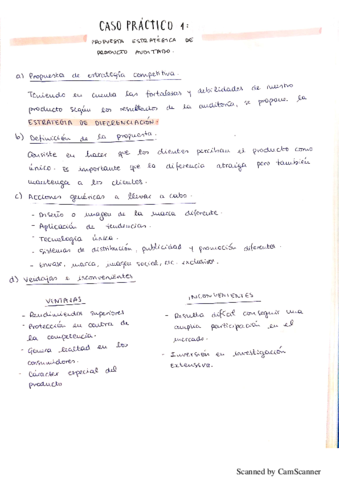 CASO PRÁCTICO 1:
PROPUESTA ESTRATÉGICA DE
PRODUCTO AUDITADO.
a) Propuesta de estrategia competitiva.
Teniendo en cuenta las fortalezas y debilidades de nuestro
producto según los resultados de la auditoría, se propone la
ESTRATEGIA DE DIFERENCIACIÓN:
b) Definición de la propuesta.
Consiste en hacer que los clientes perciban el producto como
único. Es importante que la diferencia atraiga pero también
mantenga a los clientes.
c) Acciones genéricas a llevar a cabo.
- Diseño o imagen de la marca diferente.
- Aplicación de tendencias.
- Tecnología única.
- Sistemas de distribución, publicidad y promoción diferentes.
- Envase, marca, imagen social, etc. exclusivo.
d) Ventajas e inconvenientes
VENTAJAS
- Rendimientos superiores
- Protección en contra de
la competencia.
- Genera lealtad en los
consumidores.
- Carácter especial del
producto
INCONVENIENTES
- Resulta difícil conseguir una
amplia participación en el
mercado.
- Inversión en investigación
extensiva.
Scanned by CamScanner